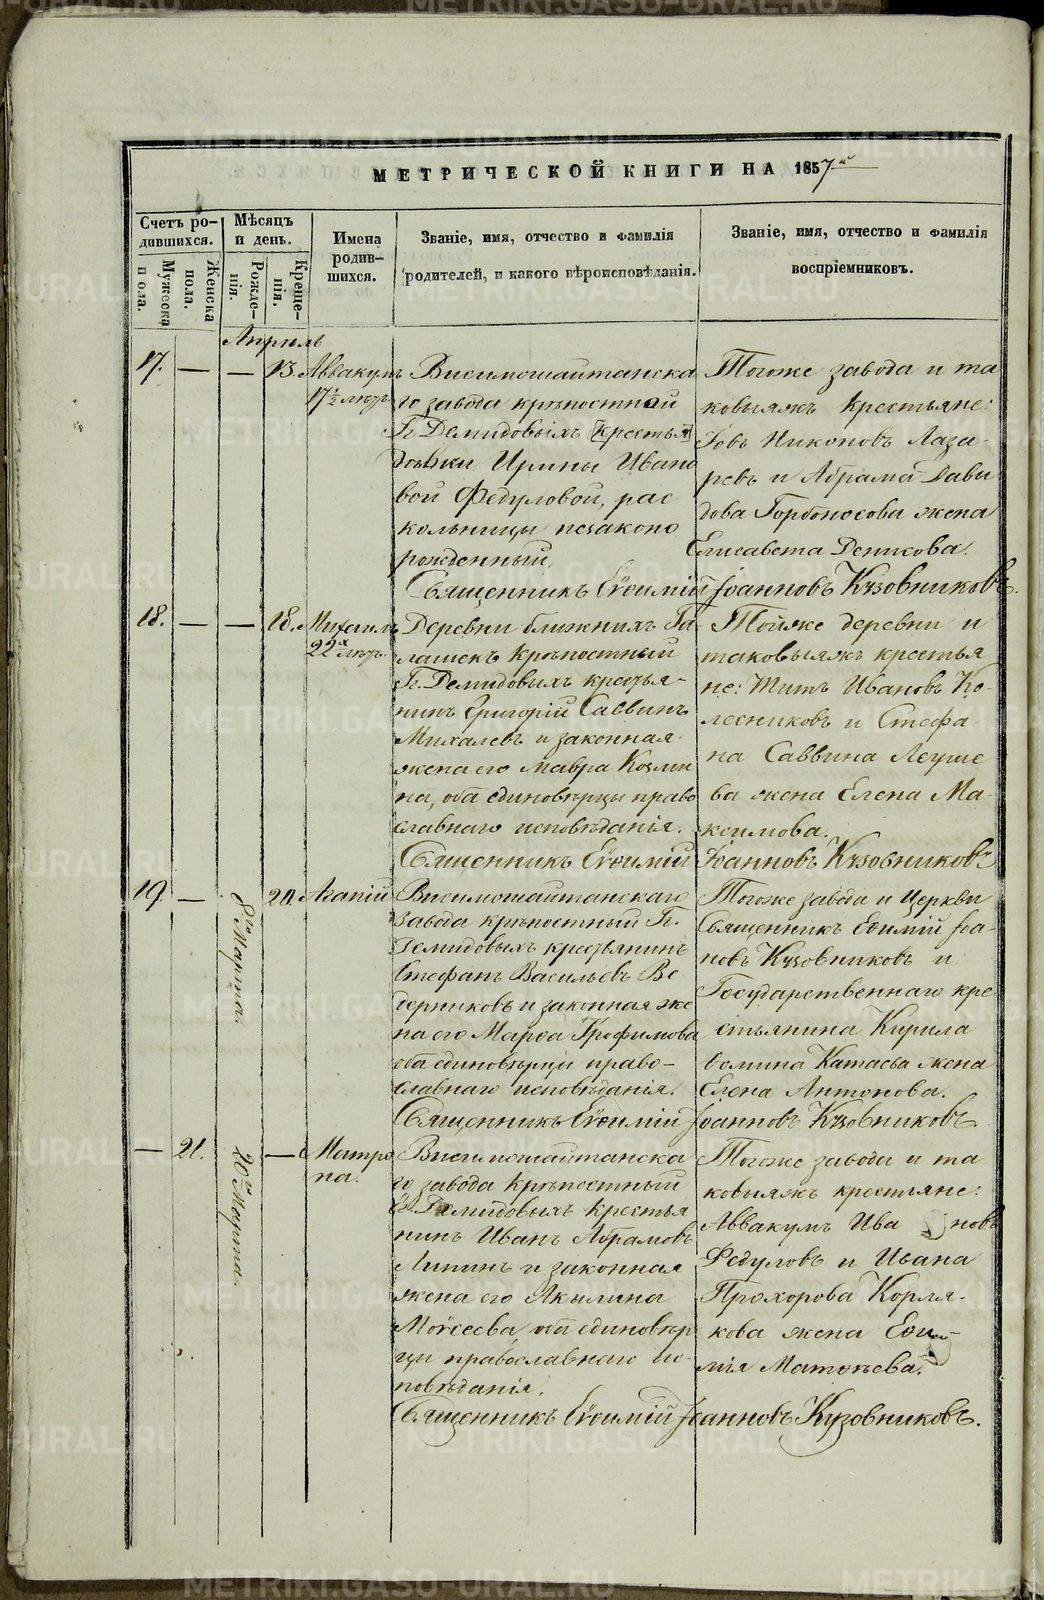 МЕТРИЧЕСКОЙ КНИГИ НА 1857й
Счетъ ро-
дившихся.
Мужеска
пола.
Женска
пола.
Мѣсяцъ
и день.
Рожде-
нія.
Креще-
нія.
Имена
родив-
шихся.
Званіе, имя, отчество и фамилія
родителей, и какого вѣроисповѣданія.
Званіе, имя, отчество и фамилія
воспріемниковъ.
Апрѣль
17. — — 13 Аввакумъ
17½ лѣтъ
Висимошайтанска
го завода крѣпостной
Гг. Демидовыхъ крестья
дочьки Ирины Ивано
вой Федуловой, рас
кольницы незаконо
рожденный.
Тогоже завода и та
ковыяжъ крестьяне:
Іовъ Никоновъ Лаза-
ревъ и Абрама Давы
дова Горбоносова жена
Елисавета Денисова.
Священникъ Евѳимій Іоанновъ Кузовниковъ.
18. — — 18. Михаилъ
22х лѣтъ
Деревни ближнихъ Га
лашекъ крѣпостный
Гг. Демидовыхъ крестья-
нинъ Григорій Саввинъ
Михалевъ и законная
жена его Мавра Козми
на, оба единовѣрцы право
славнаго исповѣданія.
Тойже деревни и
таковыяжъ крестья
не: Титъ Ивановъ Ко-
лесниковъ и Стефа
на Саввина Леуше
ва жена Елена Ма-
ксимова.
Священникъ Евѳимій Іоанновъ Кузовниковъ
19. — 8го Марта. 20. Агапій
Висимошайтанскаго
завода крѣпостный Гг.
Демидовыхъ крестьянинъ
Стефанъ Васильевъ Ве
дерниковъ и законная же
на его Марѳа Трофимова
оба единовѣрцы право-
славнаго исповѣданія.
Тогоже завода и Церкви
Священникъ Евѳимій Іоа-
новъ Кузовниковъ и
Государственнаго кре
стьянина Кирила
Ѳомина Катаева жена
Елена Антонова.
Священникъ Евѳимій Іоанновъ Кузовниковъ
— 21. 20го Марта. — Матро
на.
Висимошайтанска
го завода крѣпостный
Гг. Демидовыхъ крестья
нинъ Иванъ Абрамовъ
Липинъ и законная
жена его Акылина
Моѵсеева оба единовѣр
цы православнаго ис-
повѣданія.
Тогоже завода и та
ковыяжъ крестьяне:
Аввакумъ Ива новъ
Федуловъ и Ивана
Прохорова Корля-
кова жена Евѳи
мія Матвѣева.
Священникъ Евѳимій Іоанновъ Кузовниковъ.
METRIKI.GASO-URAL.RU